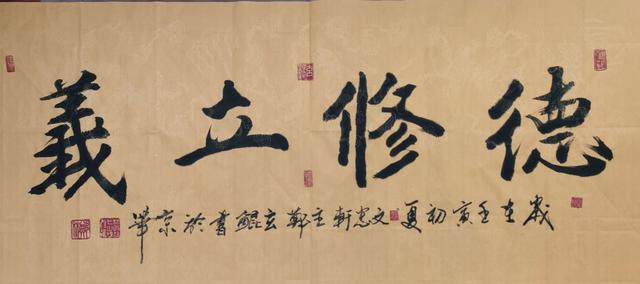 德修立義
歲在壬寅初夏文忠軒主鄭玄鯤書於京華